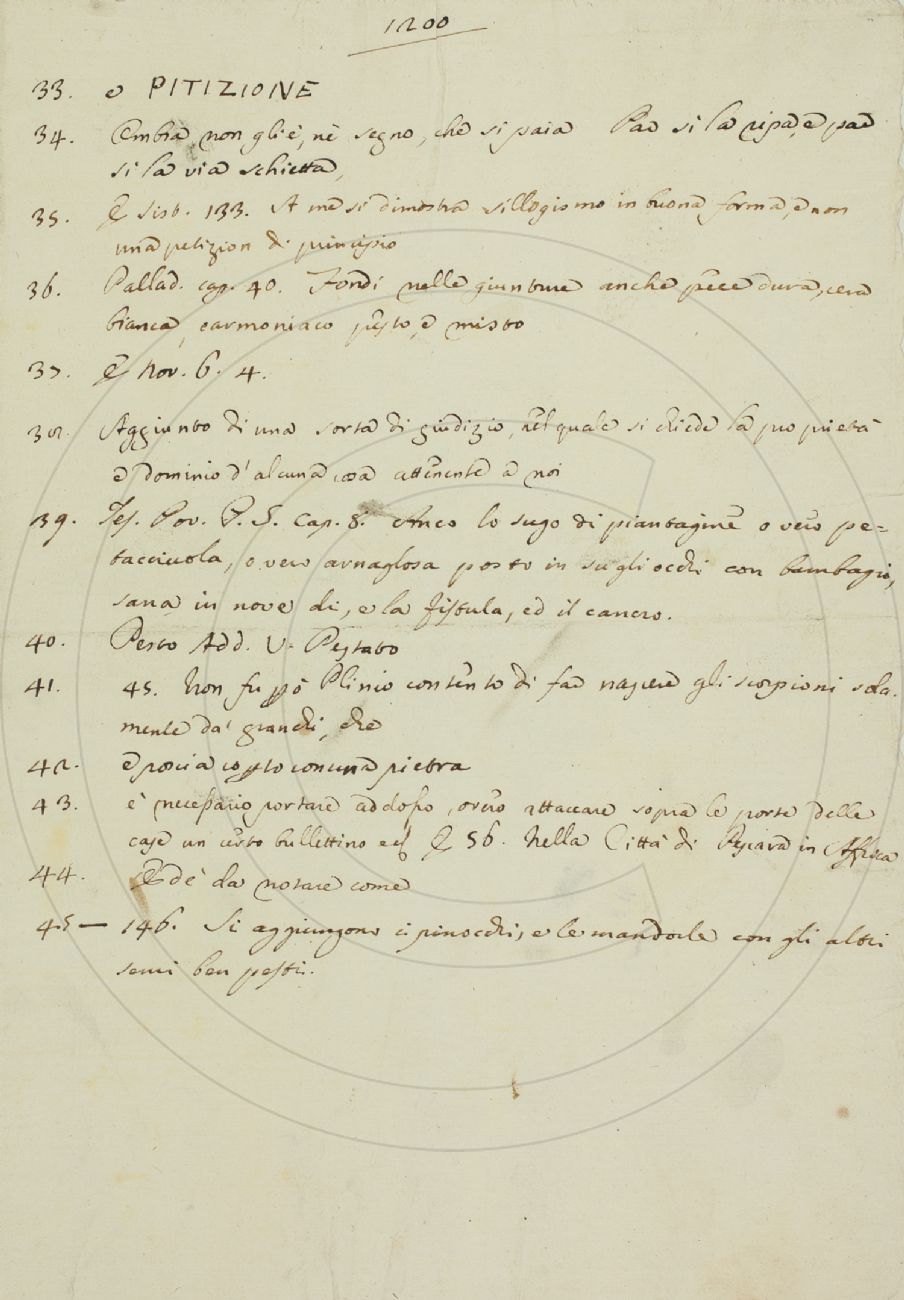 1200
33. e PITIZIONE
34. Ombra non gli è, nè segno, che si paia Par si la ripa, e par
si la via schietta,
35. E Sist. 133. A me si dimostra sillogismo in buona forma, e non
una petizion di principio
36. Pallad. cap. 40. Fondi nelle giunture anche pece dura, cera
bianca, earmoniaco pesto, e misto
37. E Nov. 6. 4.
38. Aggiunto di una sorta di giudizio, nel quale si chiede la proprietà
e dominio d'alcuna cosa attenente a noi
39. Tes. Pov. P. S. Cap. 8. Anco lo sugo di piantagine o vero pe=
tacciuola, o vero arnaglosa posto in su gli occhi con bambagio,
sana in nove dì, e la fistula, ed il cancro.
40. Pesto Add. V. Pestato
41. 45. Non fu però Plinio contento di far nascere gli scorpioni sola-
mente da' granchi, che
42. e poscia con una pietra
43. è necessario portare addosso, overo attaccare sopra le porte delle
case un certo bullettino E 56. Nella Città di Pescara in Affrica
44. Ed è da notare come
45 — 146. Si aggiungono i pinocchi, e le mandorle con gli altri
semi ben pesti.